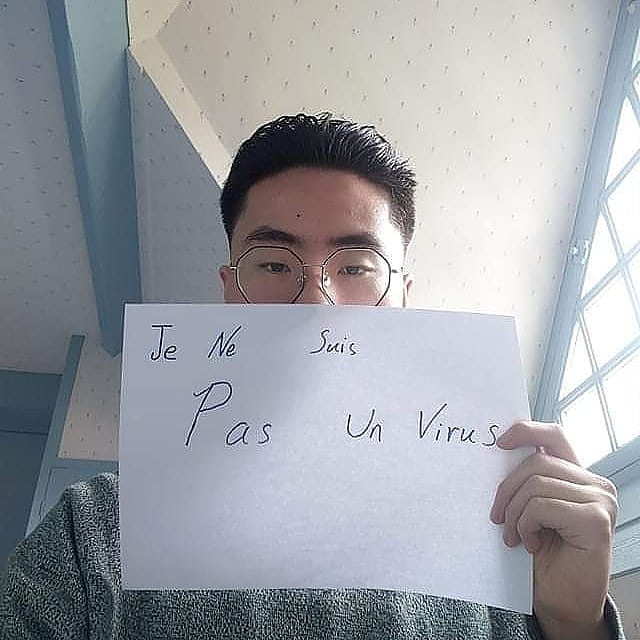 Je Ne Suis
Pas Un Virus